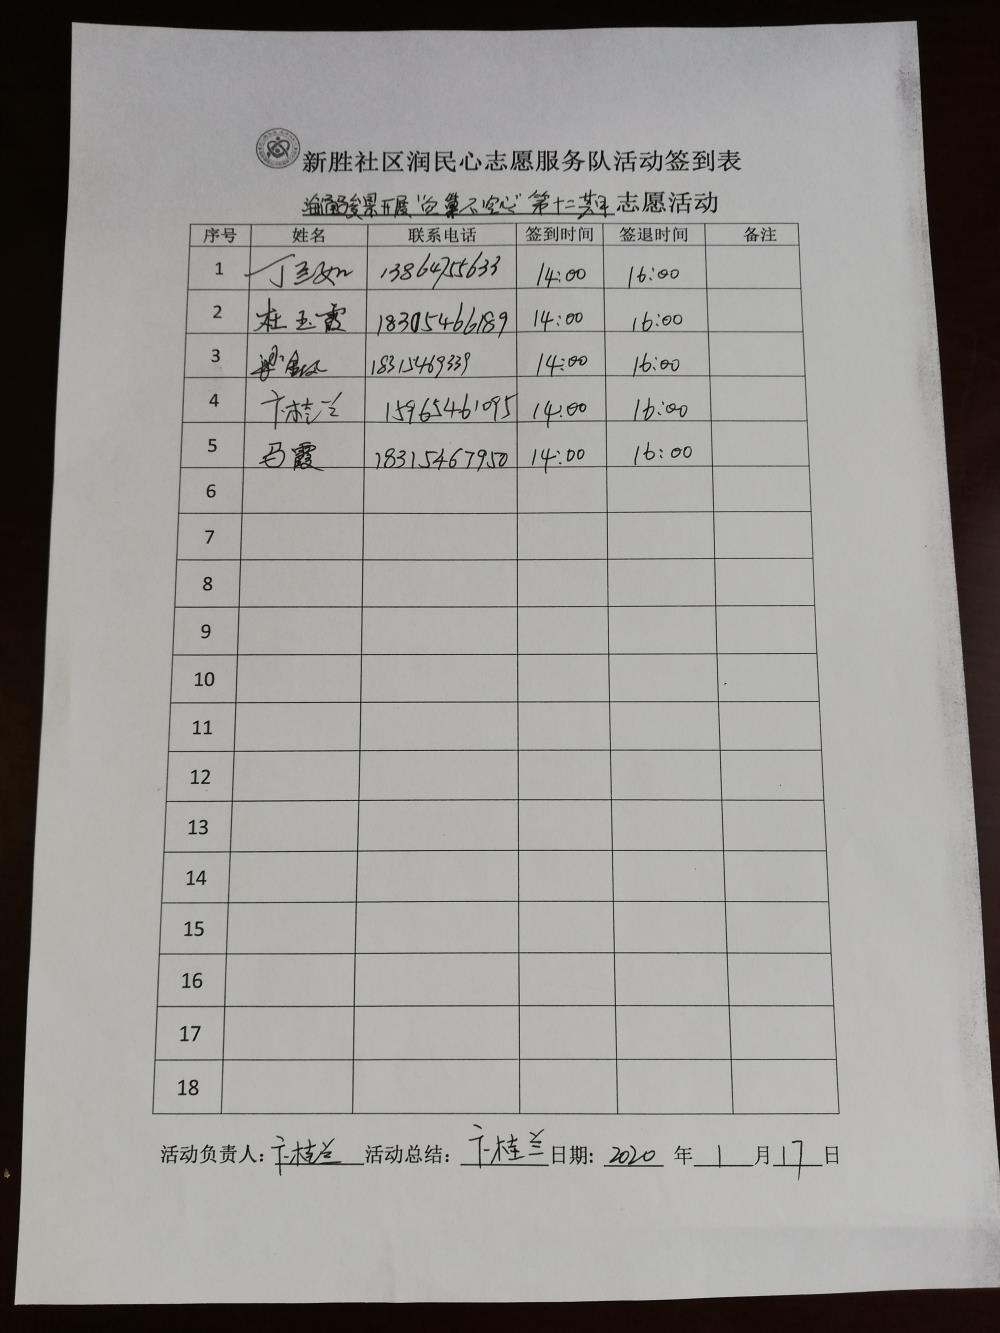 新胜社区润民心志愿服务队活动签到表
开展"空巢不空心"第十二期 志愿活动
序号 姓名 联系电话 签到时间 签退时间 备注
1 丁 13864755633 14:00 16:00
2 杜玉霞 18305466189 14:00 16:00
3 梁 18315469339 14:00 16:00
4 卞桂兰 15965461095 14:00 16:00
5 马霞 18315467950 14:00 16:00
6
7
8
9
10
11
12
13
14
15
16
17
18
活动负责人: 卞桂兰 活动总结: 卞桂兰 日期: 2020 年 1 月 17 日